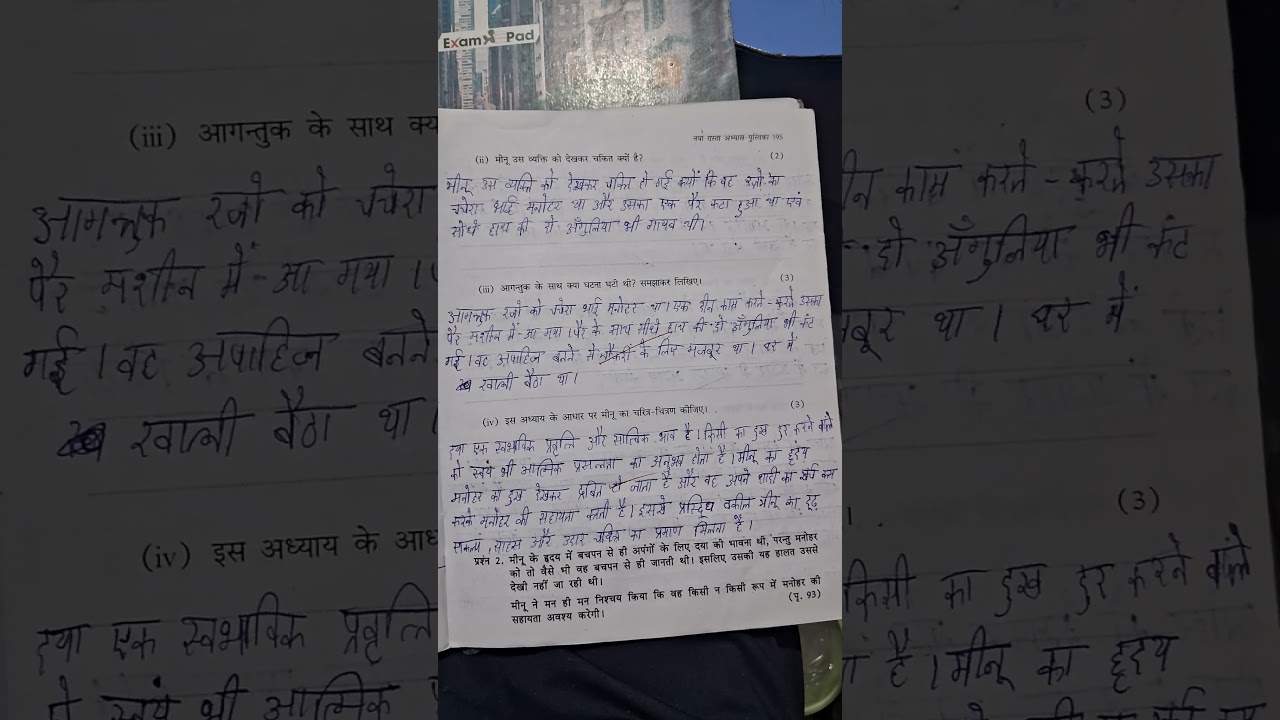 Exam Pad
नया रास्ता अभ्यास-पुस्तिका 195
(ii) मीनू उस व्यक्ति को देखकर चकित क्यों है? (2)
मीनू उस व्यक्ति को देखकर चकित हो गई क्यों कि वह रज्जो का
चचेरा भाई मनोहर था और उसका एक पैर कटा हुआ था एवं
सीधे हाथ की दो अँगुलिया भी गायब थी।
(iii) आगन्तुक के साथ क्या घटना घटी थी? समझाकर लिखिए। (3)
आगन्तुक रज्जो को चचेरा भाई मनोहर था। एक दीन काम करते-करते उसका
पैर मशीन में आ गया। पैर के साथ सीधे हाथ की दो अँगुलिया भी कट
गई। वह अपाहिज बनने से नौकरी के लिए मजबूर था। घर में
खाली बैठा था।
(iv) इस अध्याय के आधार पर मीनू का चरित्र-चित्रण कीजिए। (3)
दया एक स्वभाविक प्रवृत्ति और सात्विक भाव है। किसी का दुख दुर करने वाले
को स्वयं भी आत्मिक प्रसन्नता का अनुभव होता है। मीनू का हृदय
मनोहर को दुख देखकर द्रवित हो जाता है और वह अपने शादी का खर्च कम
करके मनोहर की सहायता करती है। इससे प्रसिद्ध वकील मीनू का दृढ़
संकल्प, साहस और उदार चरित्र का प्रमाण मिलता है।
प्रश्न 2. मीनू के हृदय में बचपन से ही अपंगों के लिए दया की भावना थी, परन्तु मनोहर
को तो वैसे भी वह बचपन से ही जानती थी। इसलिए उसकी यह हालत उससे
देखी नहीं जा रही थी।
मीनू ने मन ही मन निश्चय किया कि वह किसी न किसी रूप में मनोहर की
सहायता अवश्य करेगी। (पृ. 93)